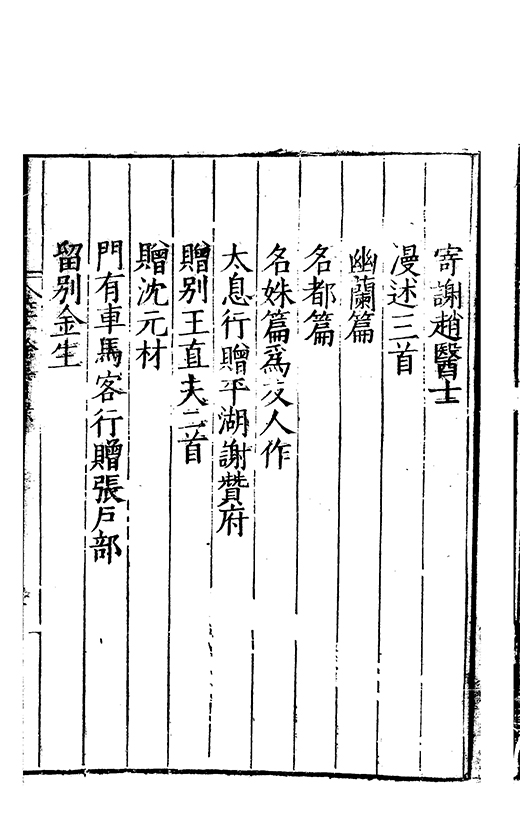 寄謝趙醫士
漫述三首
幽蘭篇
名都篇
名姝篇爲友人作
太息行贈平湖謝贊府
贈別王直夫二首
贈沈元材
門有車馬客行贈張戶部
留別金生